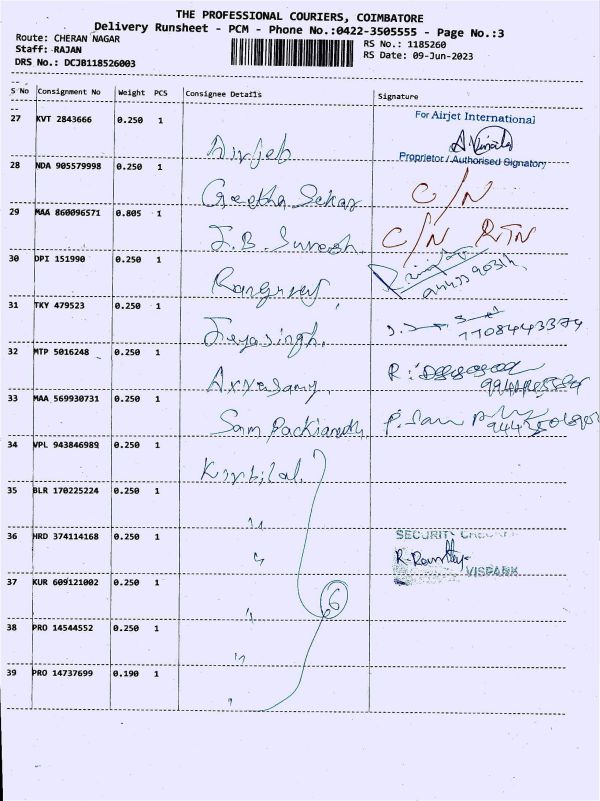 THE PROFESSIONAL COURIERS, COIMBATORE
Delivery Runsheet - PCM - Phone No.:0422-3505555 - Page No.:3
Route: CHERAN NAGAR RS No.: 1185260
Staff: RAJAN RS Date: 09-Jun-2023
DRS No.: DCJB118526003
S No Consignment No Weight PCS Consignee Details Signature
27 KVT 2843666 0.250 1 Airjet For Airjet International
Proprietor / Authorised Signatory
28 NDA 905579998 0.250 1 Geetha Sekar C/N
29 MAA 860096571 0.805 1 J.B. Suresh C/N RTN
30 DPI 151990 0.250 1
31 TKY 479523 0.250 1 Jeyasingh. 7708443374
32 MTP 5016248 0.250 1
33 MAA 569930731 0.250 1 Sam
34 VPL 943846989 0.250 1
35 BLR 170225224 0.250 1 "
36 HRD 374114168 0.250 1 " SECURITY
37 KUR 609121002 0.250 1 " 6
38 PRO 14544552 0.250 1 "
39 PRO 14737699 0.190 1 "